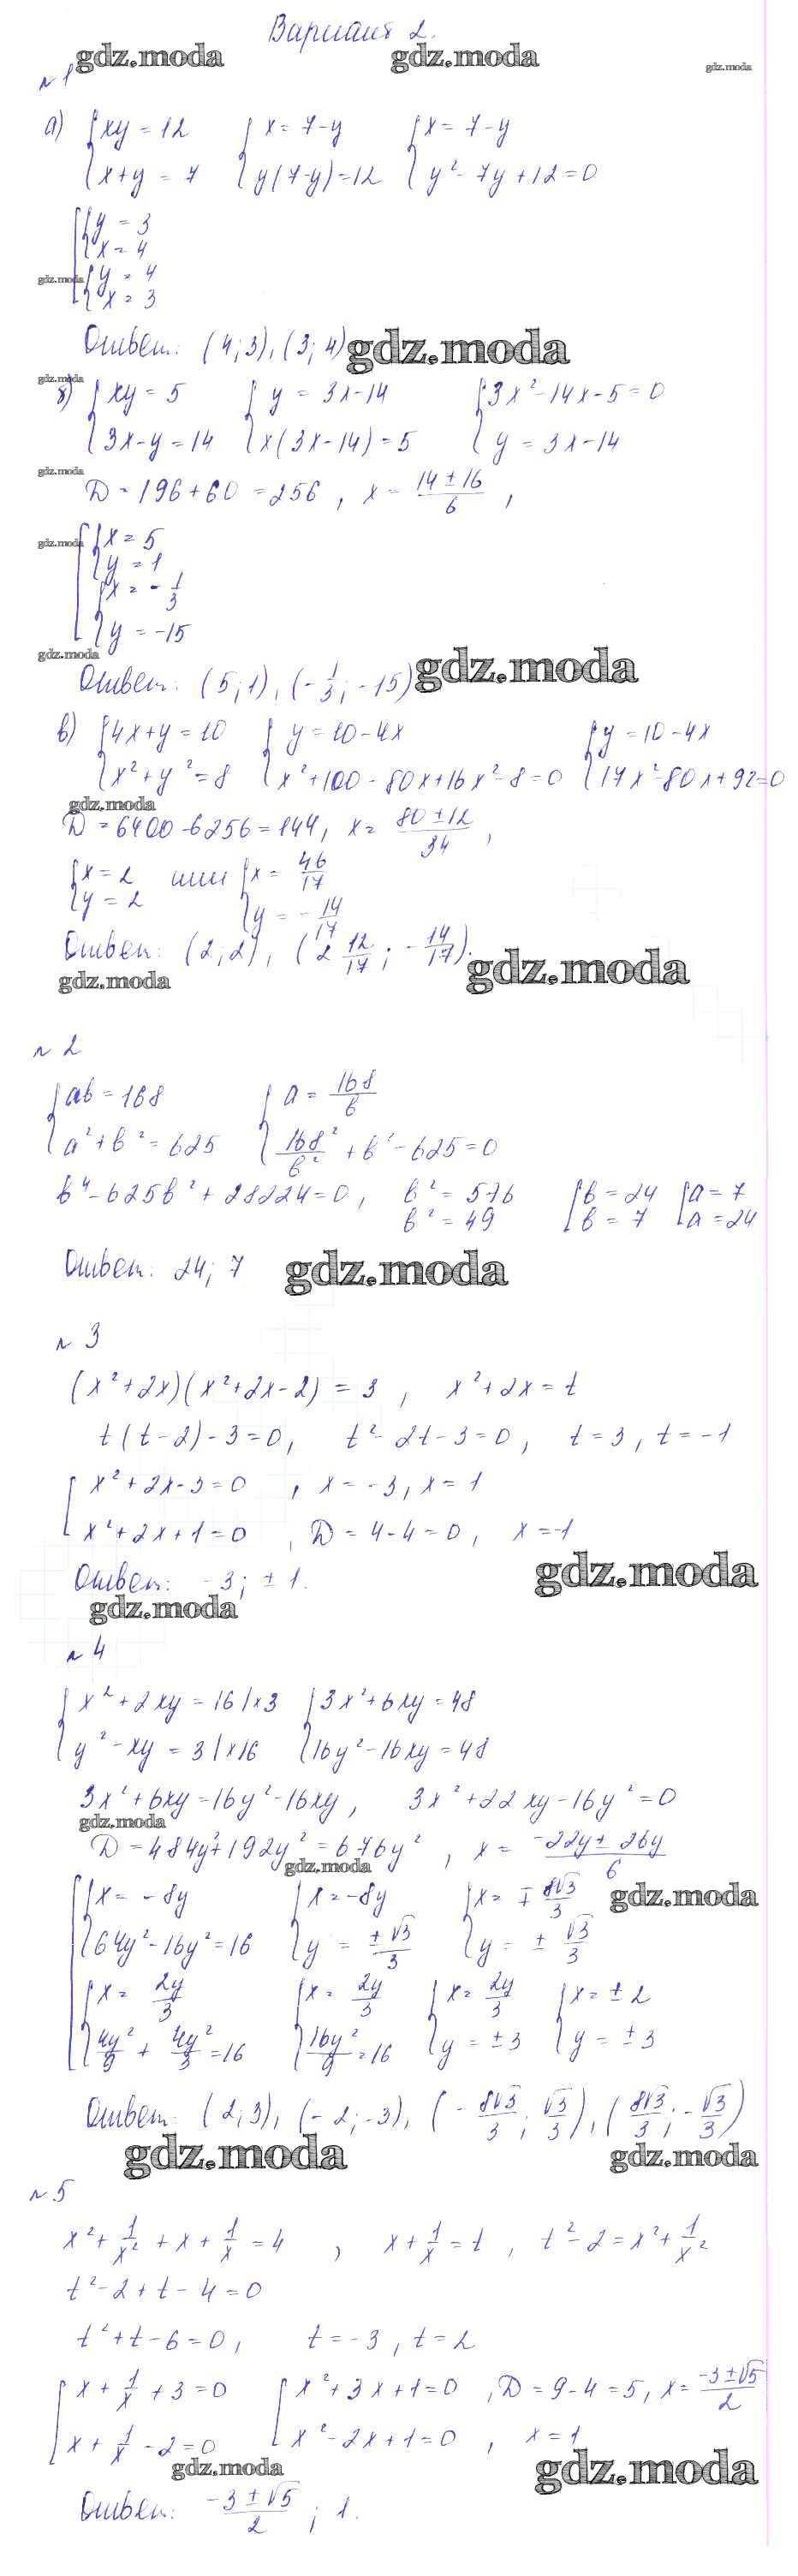 Вариант 2.
gdz.moda gdz.moda gdz.moda
№1
а) {xy = 12 {x = 7-y {x = 7-y
{x+y = 7 {y(7-y)=12 {y²-7y+12=0
[{y = 3
{x = 4
gdz.moda {y = 4
{x = 3
Ответ: (4;3), (3;4) gdz.moda
gdz.moda
б) {xy = 5 {y = 3x-14 {3x²-14x-5=0
{3x-y=14 {x(3x-14)=5 {y = 3x-14
gdz.moda
D = 196+60 = 256, x = (14±16)/6,
gdz.moda [{x = 5
{y = 1
{x = -1/3
{y = -15
gdz.moda
Ответ: (5;1), (-1/3; -15) gdz.moda
в) {4x+y = 10 {y = 10-4x {y = 10-4x
{x²+y²=8 {x²+100-80x+16x²-8=0 {17x²-80x+92=0
gdz.moda
D = 6400-6256=144, x = (80±12)/34,
{x = 2 или {x = 46/17
{y = 2 {y = -14/17
Ответ: (2;2), (2 12/17; -14/17).
gdz.moda gdz.moda
№2
{ab = 168 {a = 168/b
{a²+b²=625 {168²/b² + b²-625=0
b⁴-625b²+28224=0, b² = 576 [b = 24 [a = 7
b² = 49 [b = 7 [a = 24
Ответ: 24; 7 gdz.moda
№3
(x²+2x)(x²+2x-2) = 3, x²+2x = t
t(t-2)-3=0, t²-2t-3=0, t=3, t=-1
[x²+2x-3=0, x = -3, x = 1
[x²+2x+1=0, D = 4-4=0, x=-1
Ответ: -3; ±1.
gdz.moda gdz.moda
№4
{x²+2xy = 16 |×3 {3x²+6xy=48
{y²-xy = 3 |×16 {16y²-16xy=48
3x²+6xy=16y²-16xy, 3x²+22xy-16y²=0
gdz.moda
D = 484y²+192y²=676y², x = (-22y±26y)/6
gdz.moda
[{x = -8y {x = -8y {x = ∓8√3/3 gdz.moda
{64y²-16y²=16 {y = ±√3/3 {y = ±√3/3
{x = 2y/3 {x = 2y/3 {x = 2y/3 {x = ±2
{4y²/9 + 4y²/3 = 16 {16y²/9 = 16 {y = ±3 {y = ±3
Ответ: (2;3), (-2;-3), (-8√3/3; √3/3), (8√3/3; -√3/3)
gdz.moda gdz.moda
№5
x²+1/x²+x+1/x = 4, x+1/x = t, t²-2 = x²+1/x²
t²-2+t-4=0
t²+t-6=0, t=-3, t=2
[x+1/x+3=0 [x²+3x+1=0, D = 9-4=5, x = (-3±√5)/2
[x+1/x-2=0 [x²-2x+1=0, x = 1
gdz.moda gdz.moda
Ответ: (-3±√5)/2; 1.